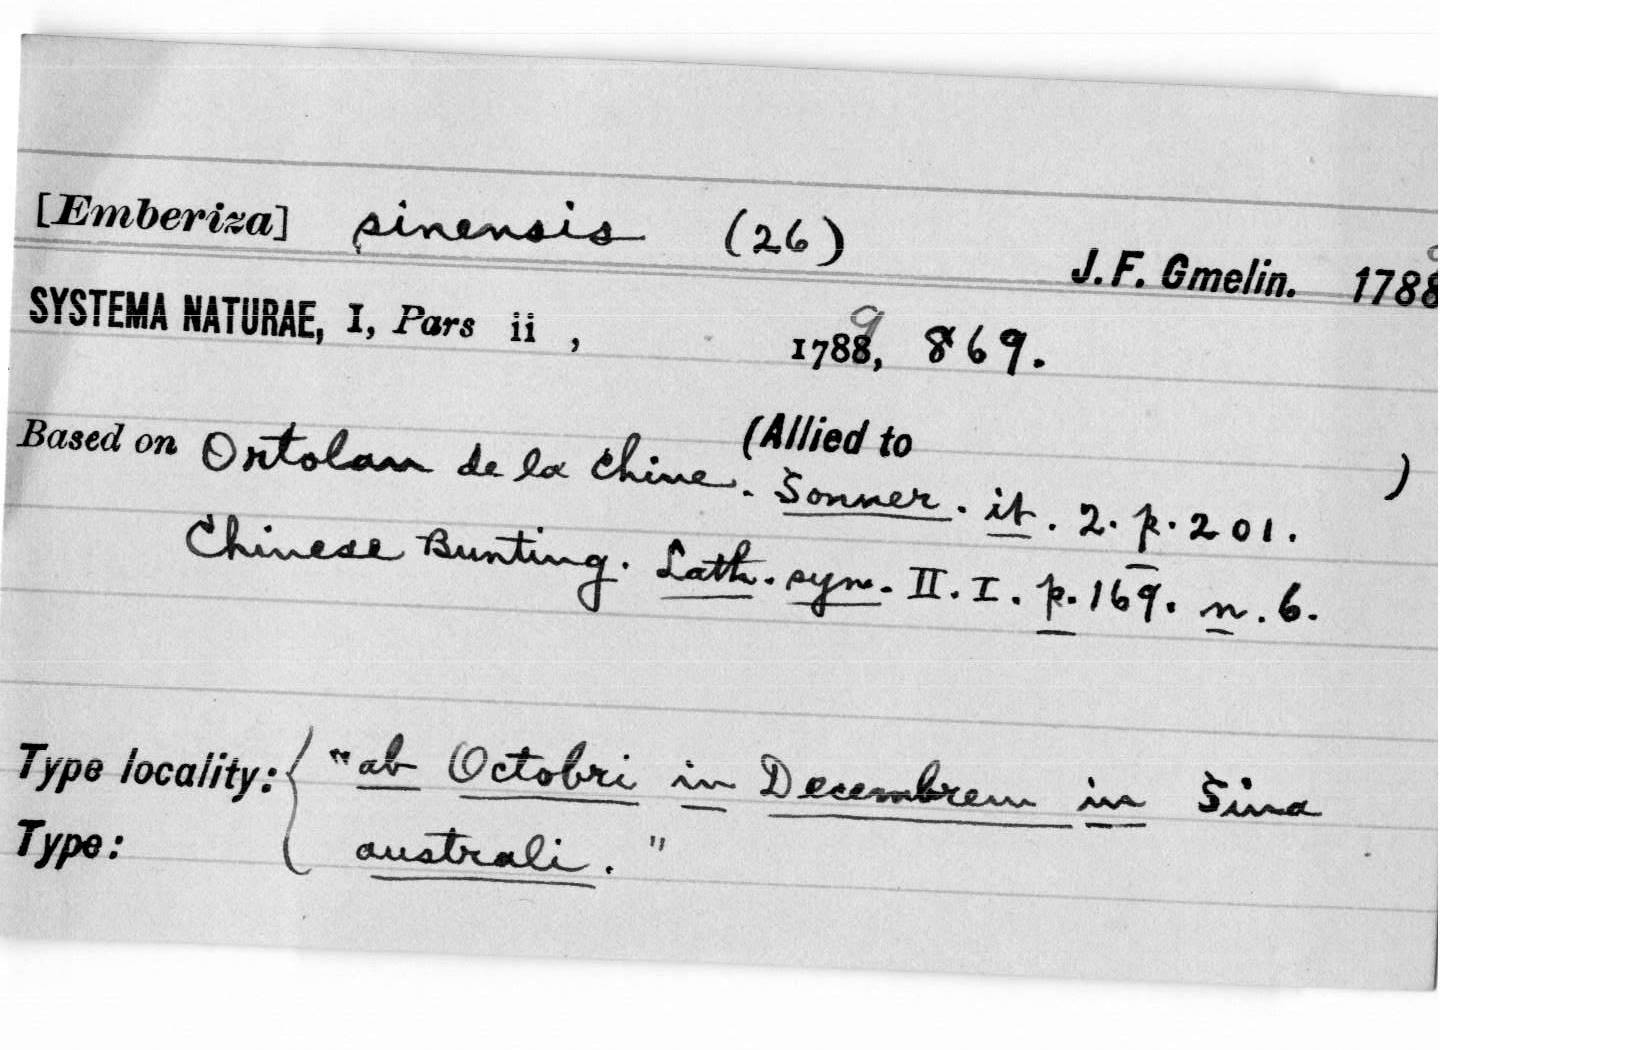 [Emberiza] sinensis (26)
J. F. Gmelin. 1788
SYSTEMA NATURAE, I, Pars ii , 1788, 9 869.
(Allied to )
Based on Ortolan de la Chine. Sonner. it. 2. p. 201.
Chinese Bunting. Lath. syn. II. I. p. 169. n. 6.
Type locality: { "ab Octobri in Decembrem in Sina
Type: australi."